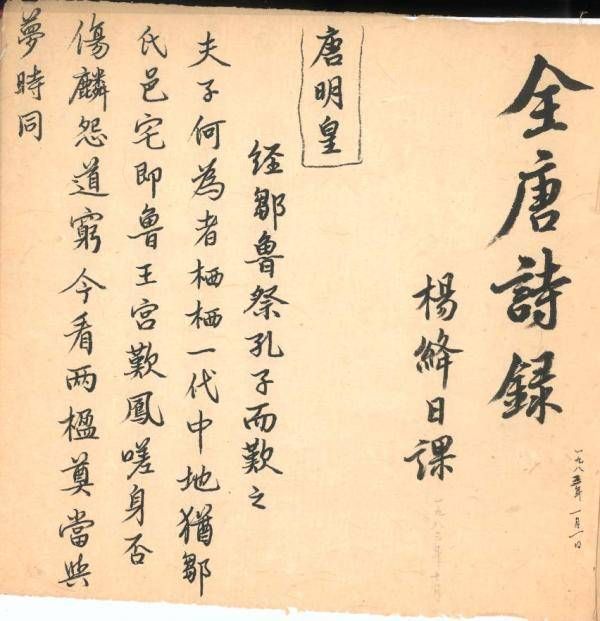 全唐詩録
一九八五年 一月一日
楊絳日課
唐明皇
经鄒魯祭孔子而歎之
夫子何為者栖栖一代中地猶鄒
氏邑宅即魯王宫歎鳳嗟身否
傷麟怨道窮今看两楹奠當與
夢時同